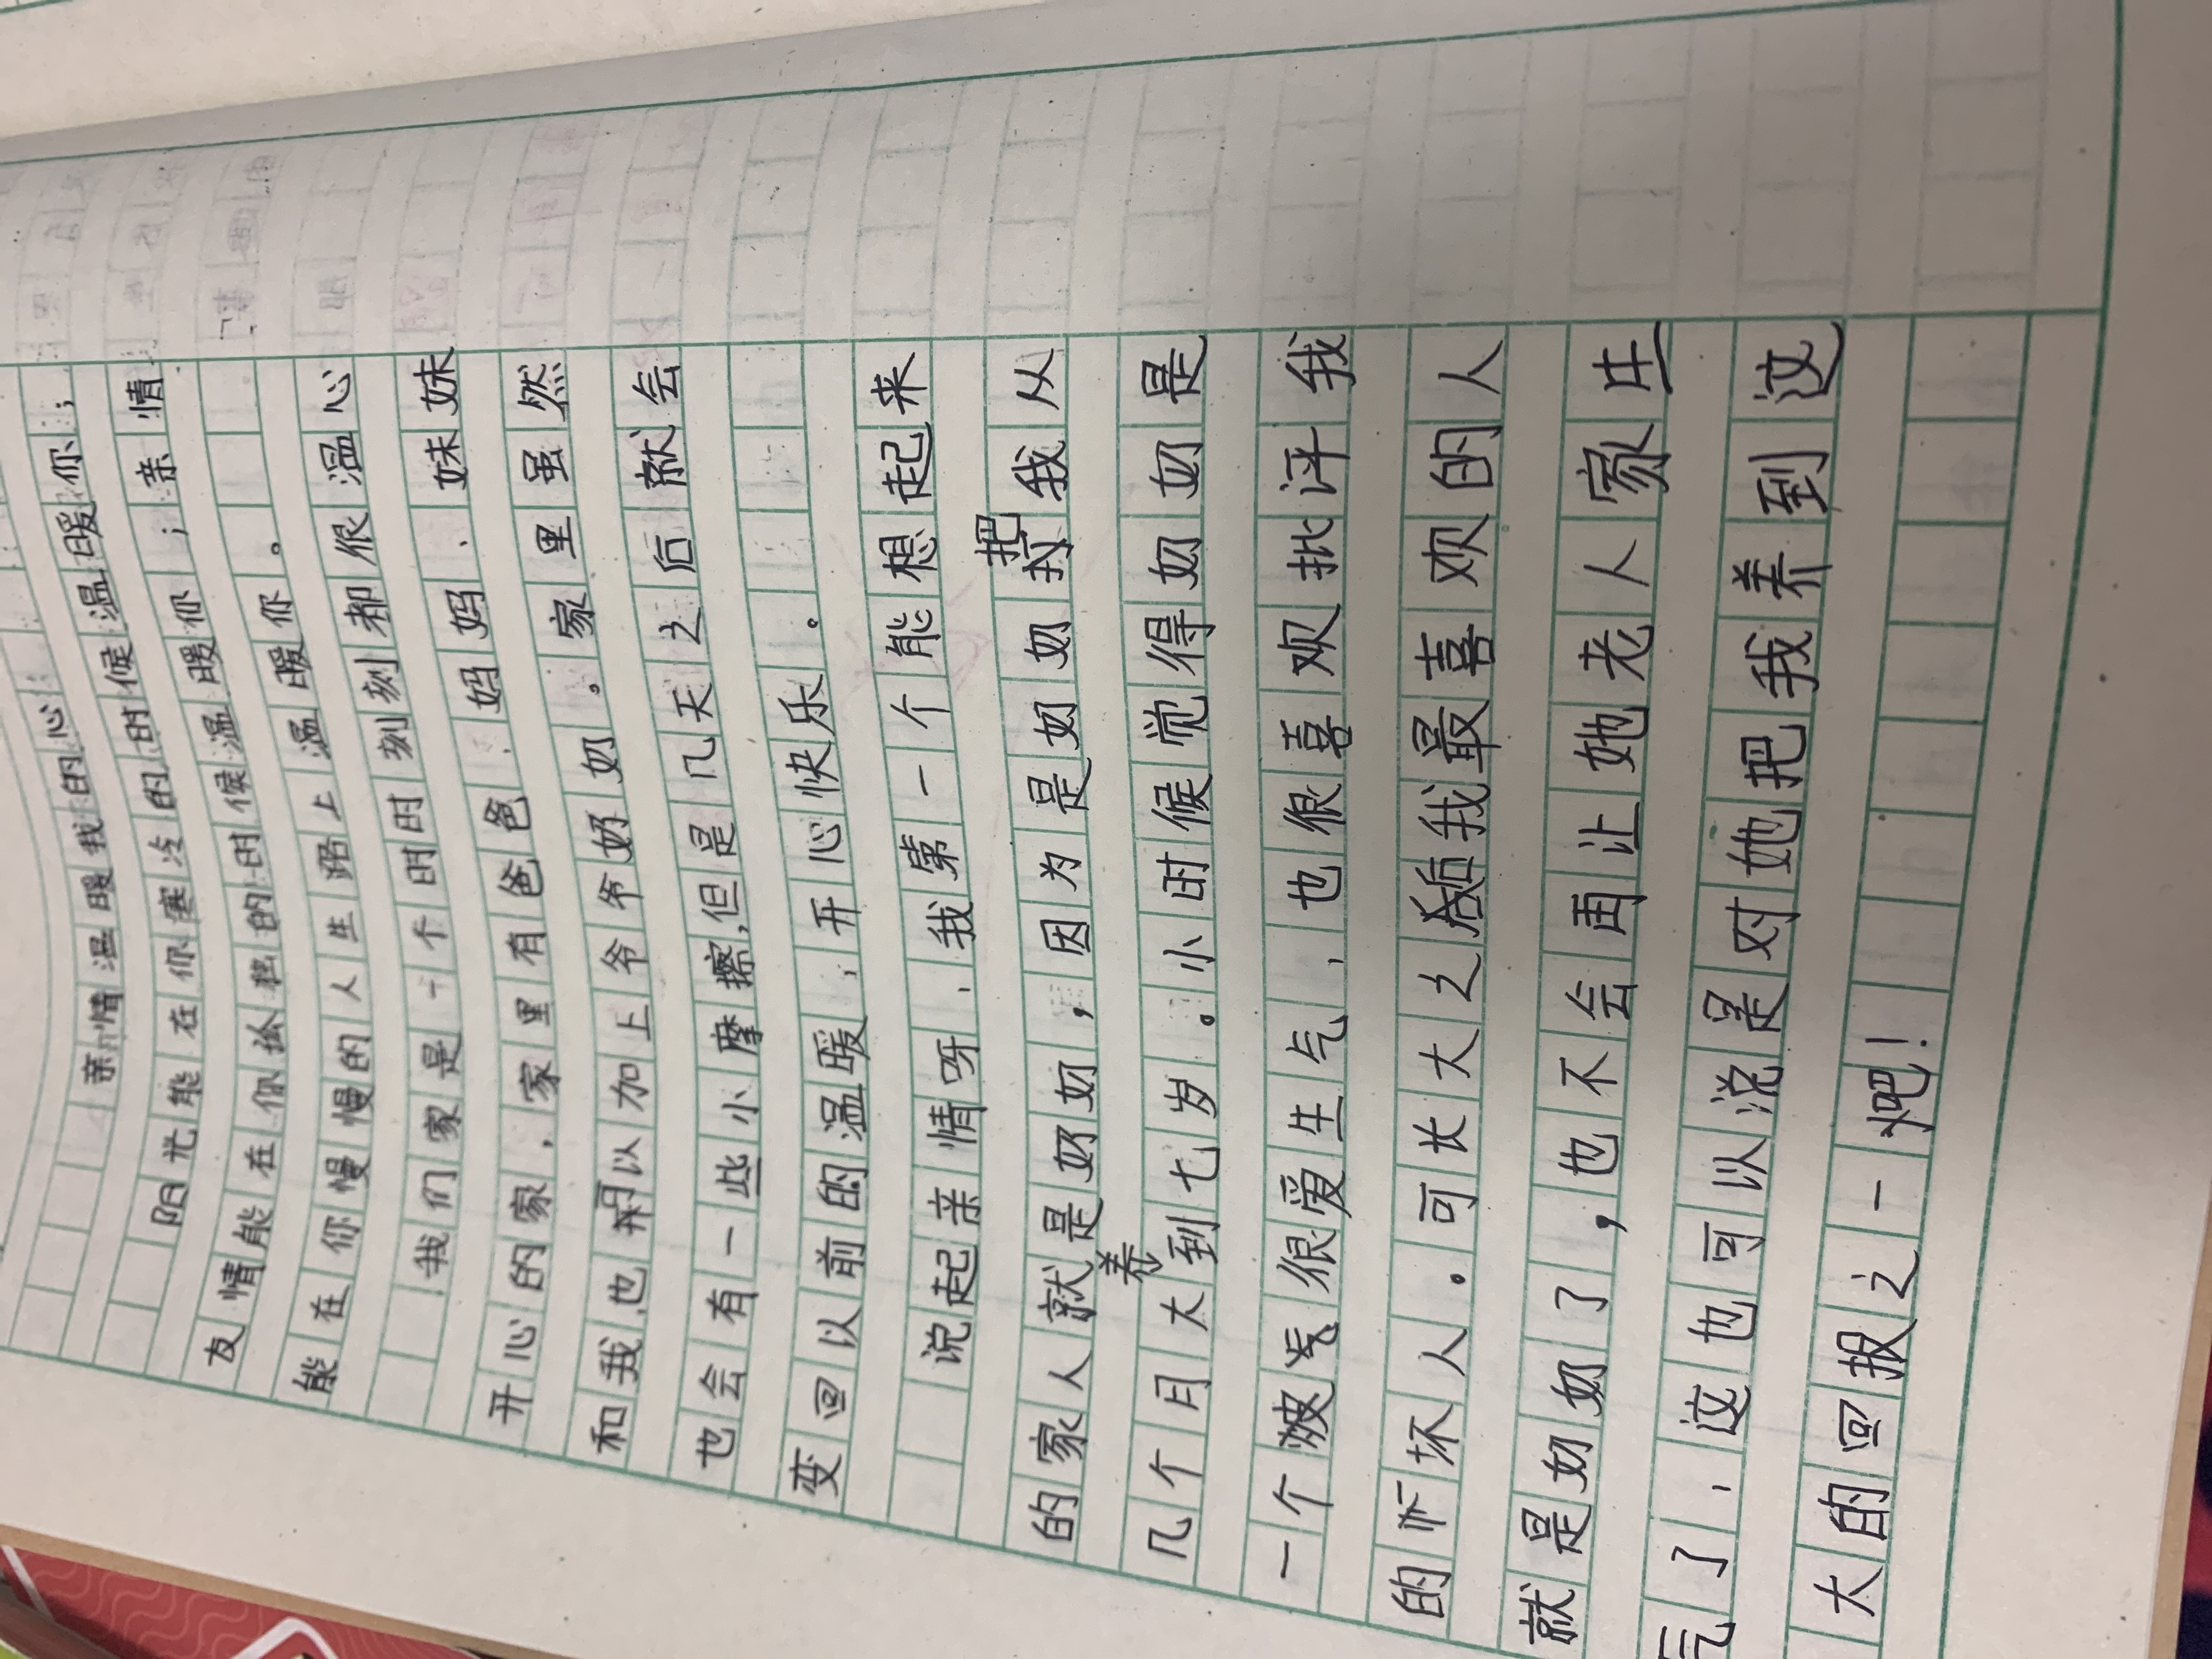 亲情温暖我的心
阳光能在你寒冷的时候温暖你；
友情能在你孤独的时候温暖你；亲情
能在你慢慢的人生路上温暖你。
我们家是一个时时刻刻都很温心
开心的家，家里有爸爸、妈妈、妹妹
和我，也可以加上爷爷奶奶。家里虽然
也会有一些小摩擦，但是几天之后就会
变回以前的温暖，开心快乐。
说起亲情呀，我第一个能想起来
的家人就是奶奶，因为是奶奶把我从
几个月大养到七岁。小时候觉得奶奶是
一个很爱生气，也很喜欢批评我
的坏人。可长大之后我最喜欢的人
就是奶奶了，也不会再让她老人家生
气了，这也可以说是对她把我养到这
大的回报之一吧！